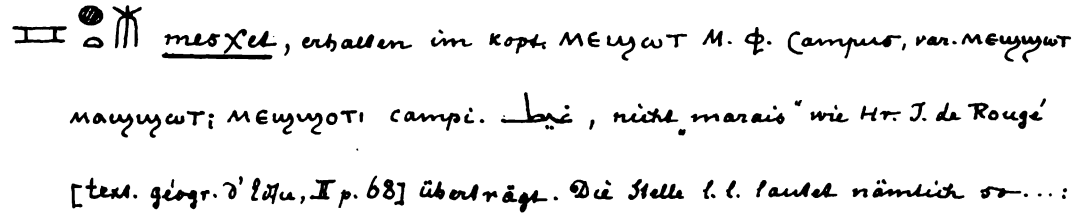 mesχet, erhalten im kopt. ⲙⲉϣⲱⲧ M. ⲫ. Campus, var. ⲙⲉϣϣⲱⲧ
ⲙⲁϣϣⲱⲧ; ⲙⲉϣϣⲟⲧⲓ campi. غيط, nicht „marais“ wie Hr. J. de Rougé
[text. géogr. d'Edfu, II p. 68] überträgt. Die Stelle l. l. lautet nämlich so...: